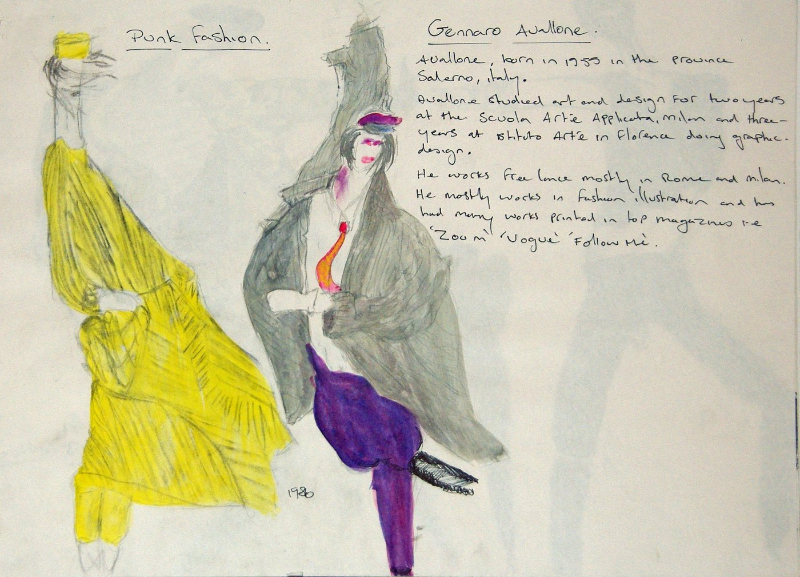 Punk Fashion.
Gennaro Avallone.
Avallone, born in 1959 in the province
Salerno, Italy.
Avallone studied art and design for two years
at the Scuola Art'e Applicata, Milan and three-
years at istituto Art'e in Florence doing graphic-
design.
He works free lance mostly in Rome and Milan.
He mostly works in fashion illustration and has
had many works printed in top magazines i-e
'Zoom' 'Vogue' 'Follow Me'.
1986